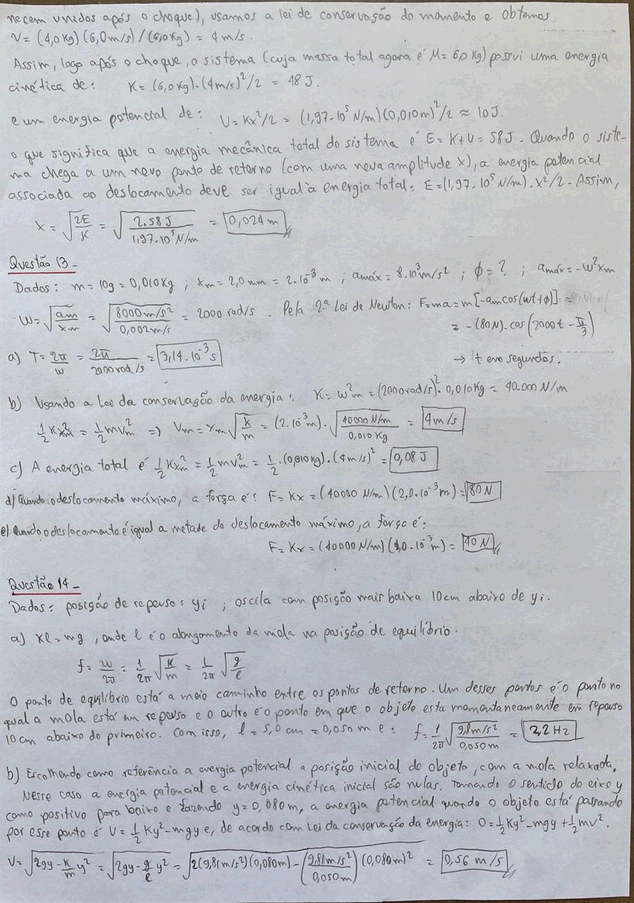 necem unidos após o choque), usamos a lei de conservação do momento e obtemos
V = (4,0 kg)(6,0 m/s)/(6,0 kg) = 4 m/s.
Assim, logo após o choque, o sistema (cuja massa total agora é M = 6,0 kg) possui uma energia
cinética de: K = (6,0 kg).(4 m/s)²/2 = 48 J.
e um energia potencial de: U = Kx²/2 = (1,97.10⁵ N/m)(0,010 m)²/2 ≈ 10 J.
o que significa que a energia mecânica total do sistema é E = K + U = 58 J. Quando o siste-
ma chega a um novo ponto de retorno (com uma nova amplitude X), a energia potencial
associada ao deslocamento deve ser igual a energia total: E = (1,97.10⁵ N/m).X²/2. Assim,
X = √(2E/K) = √(2.58 J/1,97.10⁵ N/m) = 0,024 m
Questão 13 -
Dados: m = 10g = 0,010 kg ; xm = 2,0 mm = 2.10⁻³ m ; amáx = 8.10³ m/s² ; ϕ = ? ; amáx = -w²xm
w = √(am/xm) = √(8000 m/s²/0,002 m) = 2000 rad/s. Pela 2ª Lei de Newton: F = ma = m[-am cos(wt+ϕ)] =
= -(80N).cos(2000t - π/3)
a) T = 2π/w = 2π/2000 rad/s = 3,14.10⁻³ s
→ t em segundos.
b) Usando a lei da conservação da energia: K = w²m = (2000 rad/s)².0,010 kg = 40.000 N/m
1/2 Kx²m = 1/2 mv²m ⇒ Vm = xm √(k/m) = (2.10⁻³ m).√(40000 N/m/0,010 kg) = 4 m/s
c) A energia total é 1/2 Kx²m = 1/2 mv²m = 1/2.(0,010 kg).(4 m/s)² = 0,08 J
d) Quando o deslocamento máximo, a força é: F = Kx = (40000 N/m)(2,0.10⁻³ m) = 80 N
e) Quando o deslocamento é igual a metade do deslocamento máximo, a força é:
F = Kx = (40000 N/m)(1,0.10⁻³ m) = 40 N
Questão 14 -
Dados: posição de repouso: yi ; oscila com posição mais baixa 10 cm abaixo de yi.
a) Kl = mg, onde l é o alongamento da mola na posição de equilíbrio.
f = w/2π = 1/2π √(K/m) = 1/2π √(g/l)
O ponto de equilíbrio está a meio caminho entre os pontos de retorno. Um desses pontos é o ponto no
qual a mola está em repouso e o outro é o ponto em que o objeto está momentaneamente em repouso
10 cm abaixo do primeiro. Com isso, l = 5,0 cm = 0,050 m e: f = 1/2π √(9,8 m/s²/0,050 m) = 2,2 Hz
b) Escolhendo como referência a energia potencial a posição inicial do objeto, com a mola relaxada,
Nesse caso a energia potencial e a energia cinética inicial são nulas. Tomando o sentido do eixo y
como positivo para baixo e fazendo y = 0,080 m, a energia potencial quando o objeto está passando
por esse ponto é U = 1/2 Ky² - mgy e, de acordo com Lei da conservação da energia: 0 = 1/2 Ky² - mgy + 1/2 mv².
V = √(2gy - K/m y²) = √(2gy - g/l y²) = √(2(9,81 m/s²)(0,080 m) - (9,81 m/s²/0,050 m)(0,080 m)²) = 0,56 m/s